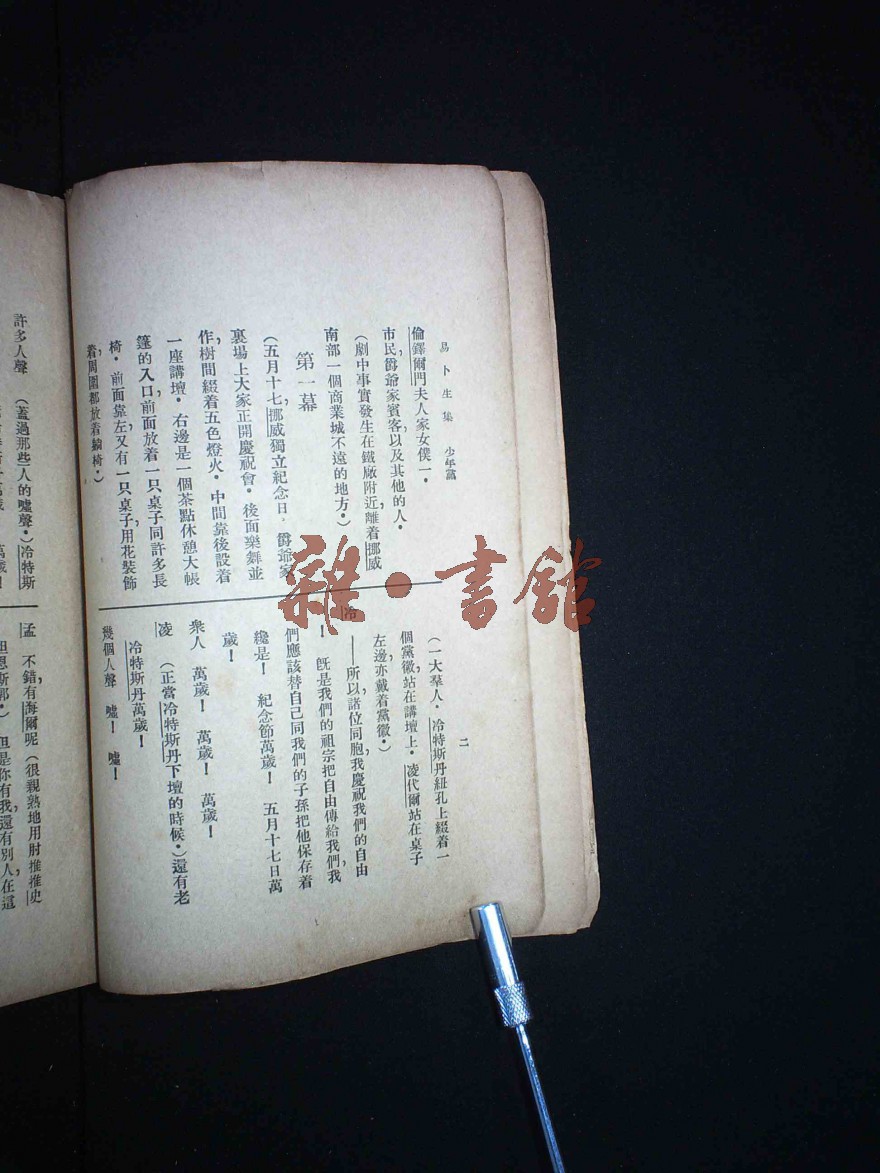 易卜生集 少年黨
二
倫鐸爾門夫人家女僕一•
市民,爵爺家賓客以及其他的人•
(劇中事實發生在鐵廠附近,離着挪威
南部一個商業城不遠的地方•)
第一幕
(五月十七,挪威獨立紀念日。爵爺家
裏場上大家正開慶祝會•後面樂舞並
作,樹間綴着五色燈火•中間靠後設着
一座講壇•右邊是一個茶點休憩大帳
篷的入口,前面放着一只桌子同許多長
椅•前面靠左又有一只桌子,用花裝飾
着,周圍都放着躺椅•)
(一大羣人•冷特斯丹紐孔上綴着一
個黨徽,站在講壇上•凌代爾站在桌子
左邊亦戴着黨徽•)
冷 ——所以諸位同胞,我慶祝我們的自由
!旣是我們的祖宗把自由傳給我們,我
們應該替自己同我們的子孫把他保存着
纔是!紀念節萬歲!五月十七日萬
歲!
衆人 萬歲!萬歲!萬歲!
凌 (正當冷特斯丹下壇的時候•)還有老
冷特斯丹萬歲!
幾個人聲 噓!噓!
許多人聲 (蓋過那些人的噓聲•)冷特斯
孟 不錯,有海爾呢(很親熱地用肘推推史
但是你有我,還有別人在這
雜•書館